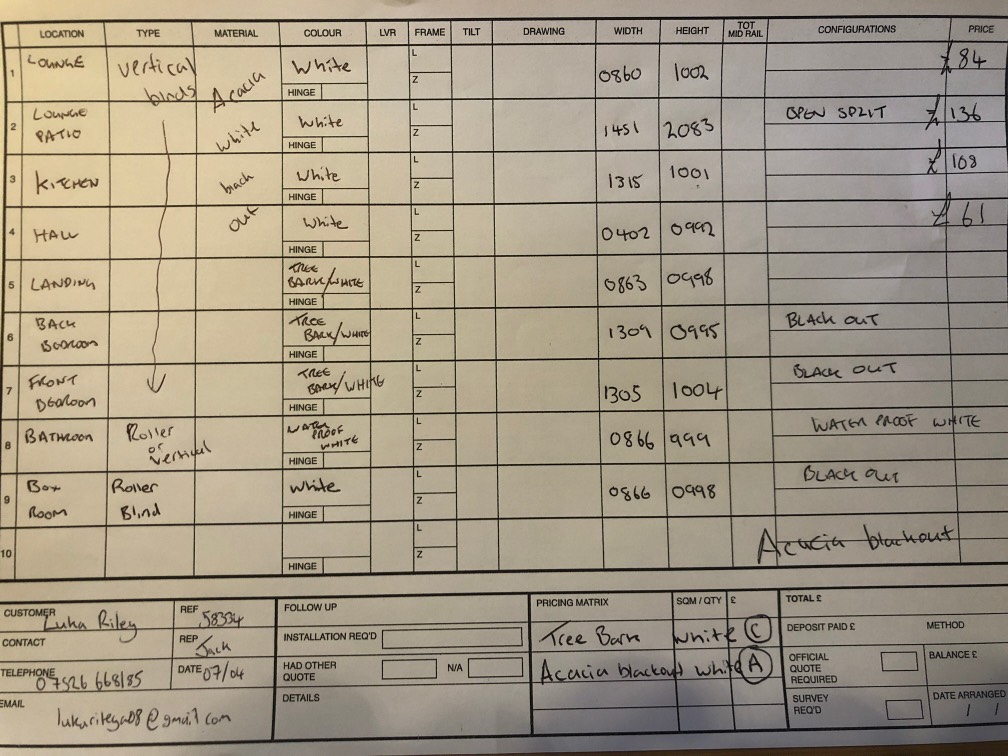 LOCATION TYPE MATERIAL COLOUR LVR FRAME TILT DRAWING WIDTH HEIGHT TOT MID RAIL CONFIGURATIONS PRICE
1 LOUNGE vertical White HINGE L Z 0860 1002 £84
binds Acacia
2 LOUNGE PATIO white White HINGE L Z 1451 2083 OPEN SPLIT £136
3 KITCHEN black White HINGE L Z 1315 1001 £108
4 HALL out White HINGE L Z 0402 0992 £61
5 LANDING TREE BARK/WHITE HINGE L Z 0863 0998
6 BACK BEDROOM TREE BARK/WHITE HINGE L Z 1309 0995 BLACK OUT
7 FRONT BEDROOM TREE BARK/WHITE HINGE L Z 1305 1004 BLACK OUT
8 BATHROOM Roller or vertical WATER PROOF WHITE HINGE L Z 0866 999 WATER PROOF WHITE
9 Box ROOM Roller Blind white HINGE L Z 0866 0998 BLACK OUT
10 HINGE L Z Acacia blackout
CUSTOMER Luka Riley
CONTACT
TELEPHONE 07526 668185
EMAIL
REF 58334
REP Jack
DATE 07/04
FOLLOW UP
INSTALLATION REQ'D
HAD OTHER QUOTE N/A
DETAILS
PRICING MATRIX SQM / QTY £
Tree Bark white C
Acacia blackout white A
TOTAL £
DEPOSIT PAID £ METHOD
OFFICIAL QUOTE REQUIRED BALANCE £
SURVEY REQ'D DATE ARRANGED
/ /